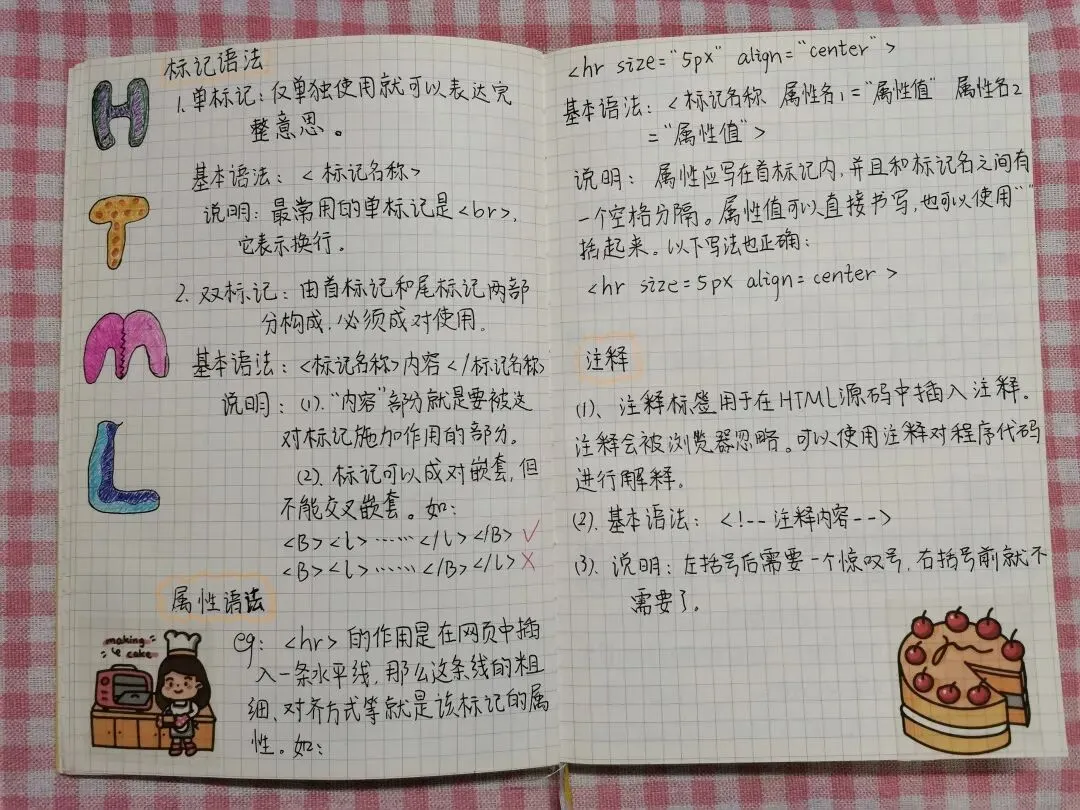 HTML
标记语法
1. 单标记：仅单独使用就可以表达完
整意思。
基本语法：<标记名称>
说明：最常用的单标记是<br>，
它表示换行。
2. 双标记：由首标记和尾标记两部
分构成，必须成对使用。
基本语法：<标记名称>内容</标记名称>
说明：(1)."内容"部分就是要被这
对标记施加作用的部分。
(2).标记可以成对嵌套，但
不能交叉嵌套。如：
<B><l>……</l></B>✓
<B><l>……</B></l>×
属性语法
eg：<hr>的作用是在网页中插
入一条水平线，那么这条线的粗
细、对齐方式等就是该标记的属
性。如：
making
cake
<hr size="5px" align="center">
基本语法：<标记名称 属性名1="属性值" 属性名2
="属性值">
说明：属性应写在首标记内，并且和标记名之间有
一个空格分隔。属性值可以直接书写，也可以使用""
括起来。以下写法也正确：
<hr size=5px align=center>
注释
(1)、注释标签用于在HTML源码中插入注释。
注释会被浏览器忽略。可以使用注释对程序代码
进行解释。
(2).基本语法：<!--注释内容-->
(3).说明：左括号后需要一个惊叹号，右括号前就不
需要了。